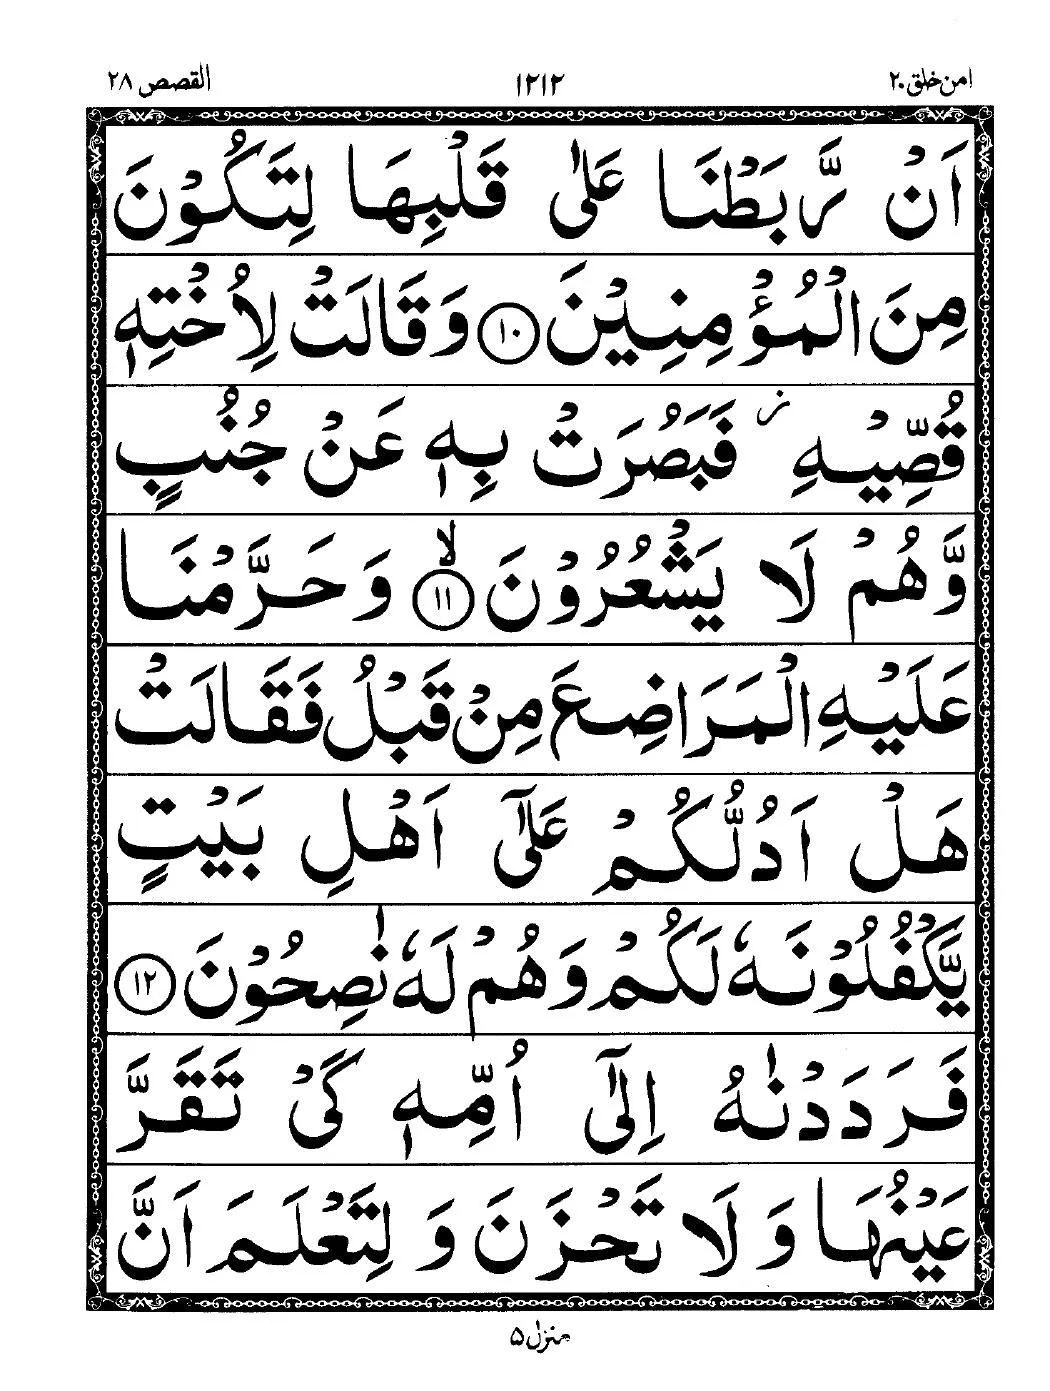 امن خلق ٢٠ ١٢١٢ القصص ٢٨
اَنۡ رَّبَطۡنَا عَلٰى قَلۡبِهَا لِتَكُوۡنَ
مِنَ الۡمُؤۡمِنِيۡنَ ﴿١٠﴾ وَقَالَتۡ لِاُخۡتِهٖ
قُصِّيۡهِ ز فَبَصُرَتۡ بِهٖ عَنۡ جُنُبٍ
وَّهُمۡ لَا يَشۡعُرُوۡنَ ۙ﴿١١﴾ وَحَرَّمۡنَا
عَلَيۡهِ الۡمَرَاضِعَ مِنۡ قَبۡلُ فَقَالَتۡ
هَلۡ اَدُلُّكُمۡ عَلٰٓى اَهۡلِ بَيۡتٍ
يَّكۡفُلُوۡنَهٗ لَكُمۡ وَهُمۡ لَهٗ نٰصِحُوۡنَ ﴿١٢﴾
فَرَدَدۡنٰهُ اِلٰٓى اُمِّهٖ كَىۡ تَقَرَّ
عَيۡنُهَا وَلَا تَحۡزَنَ وَلِتَعۡلَمَ اَنَّ
منزل ۵